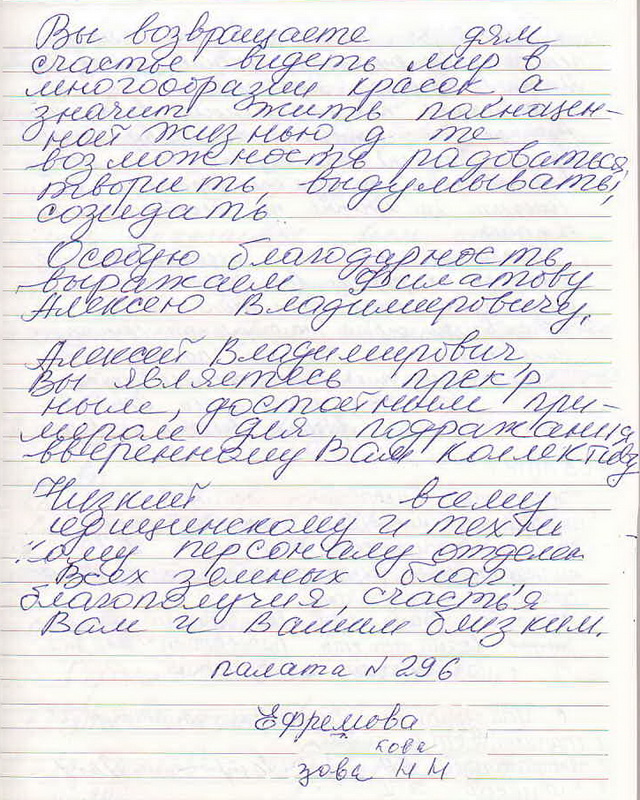 Вы возвращаете дям
счастье видеть мир в
многообразии красок а
значит жить полноцен-
ной жизнью, д те
возможность радоваться,
творить, выдумывать,
созидать.
Особую благодарность
выражаем Филатову
Алексею Владимировичу.
Алексей Владимирович,
Вы являетесь прекр
ным, достойным при-
мером для подражания
вверенному Вам коллективу
Низкий всему
едицинскому и техни
ому персоналу отделен
Всех земных благ,
благополучия, счастья
Вам и Вашим близким.
палата N 296
Ефремова
кова
зова Н Н